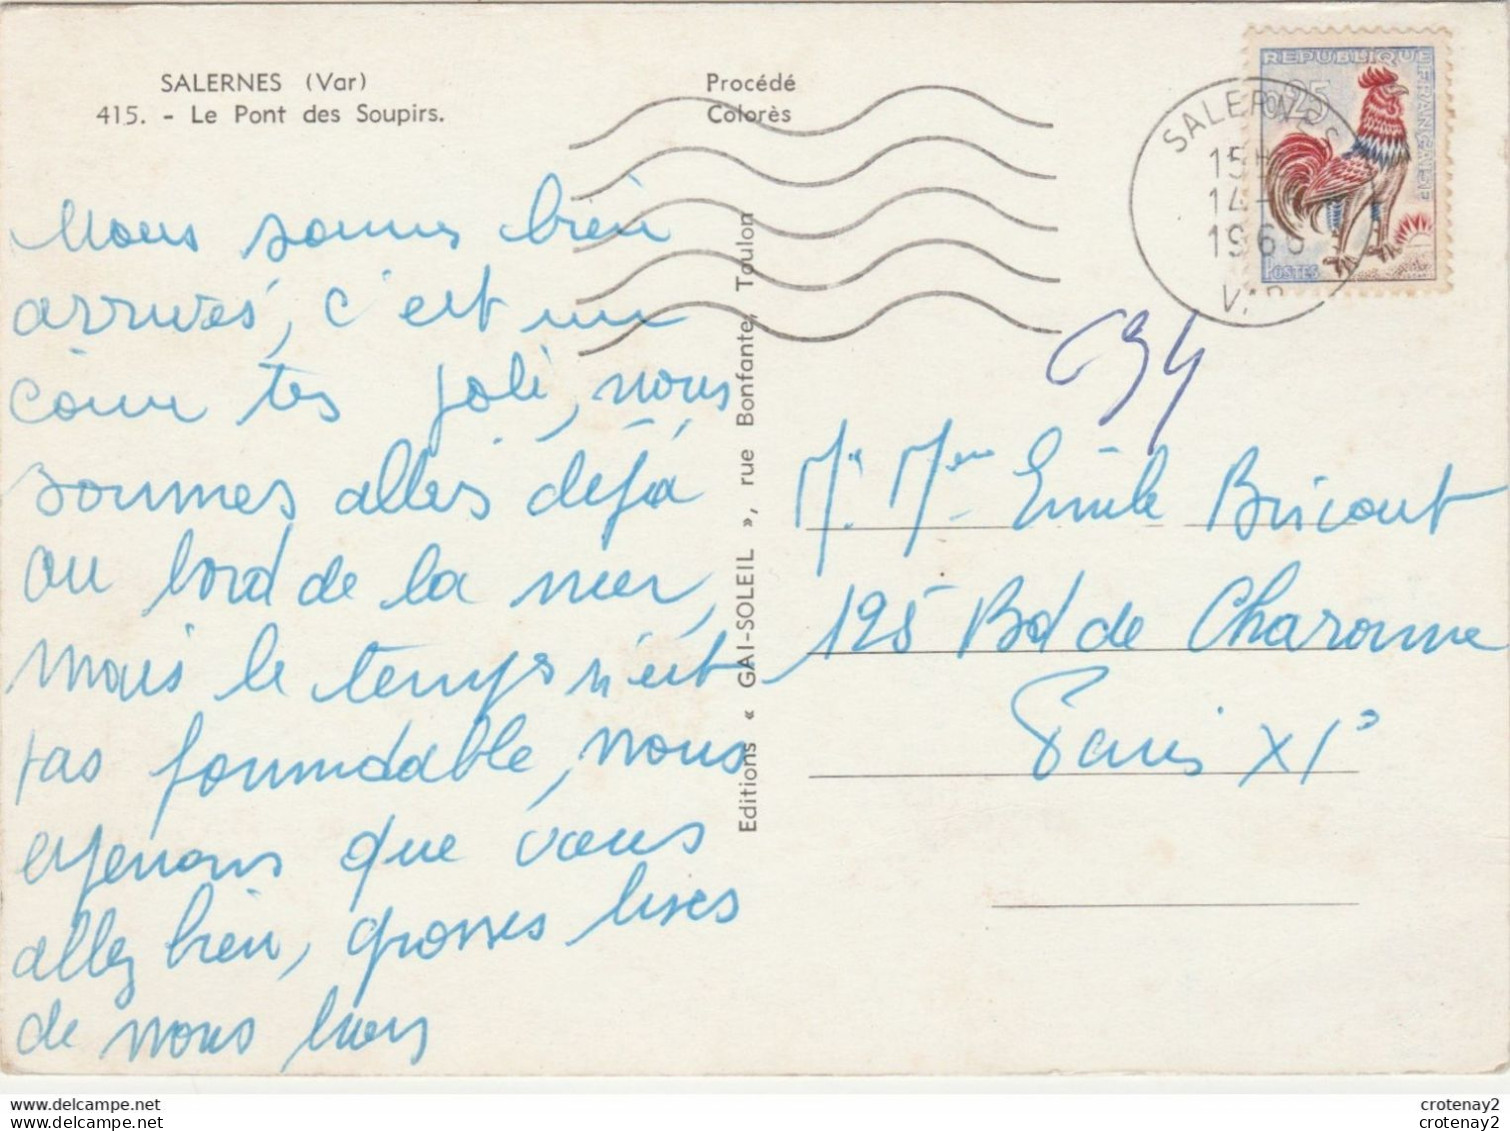 SALERNES (Var)
415. - Le Pont des Soupirs.
Procédé
Colorès
REPUBLIQUE FRANÇAISE
0,25
POSTES
SALERNES
15H
14-
196
VAR
Nous sommes bien
arrivés, c'est un
coin tès joli, nous
sommes allés déjà
au bord de la mer,
mais le temps n'est
pas formidable, nous
espérons que vous
allez bien, grosses bises
de nous trois
Editions « GAI-SOLEIL », rue Bonfante, Toulon
694
Mr. Mme Emile Bricout
125 Bd de Charonne
Paris XI°
www.delcampe.net
www.delcampe.net
crotenay2
crotenay2